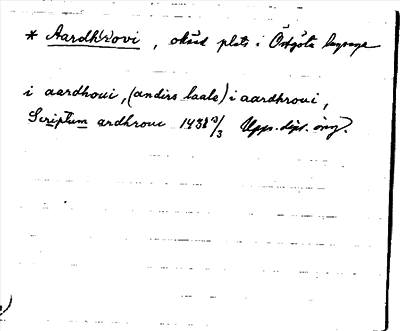 * Aardh(r)ovi, okänd plats i Östgöta lagsaga
i aardhoui, (andirs laale) i aardhroui,
Scriptum ardhroui 1438 3/3 Upps. dipl. orig.